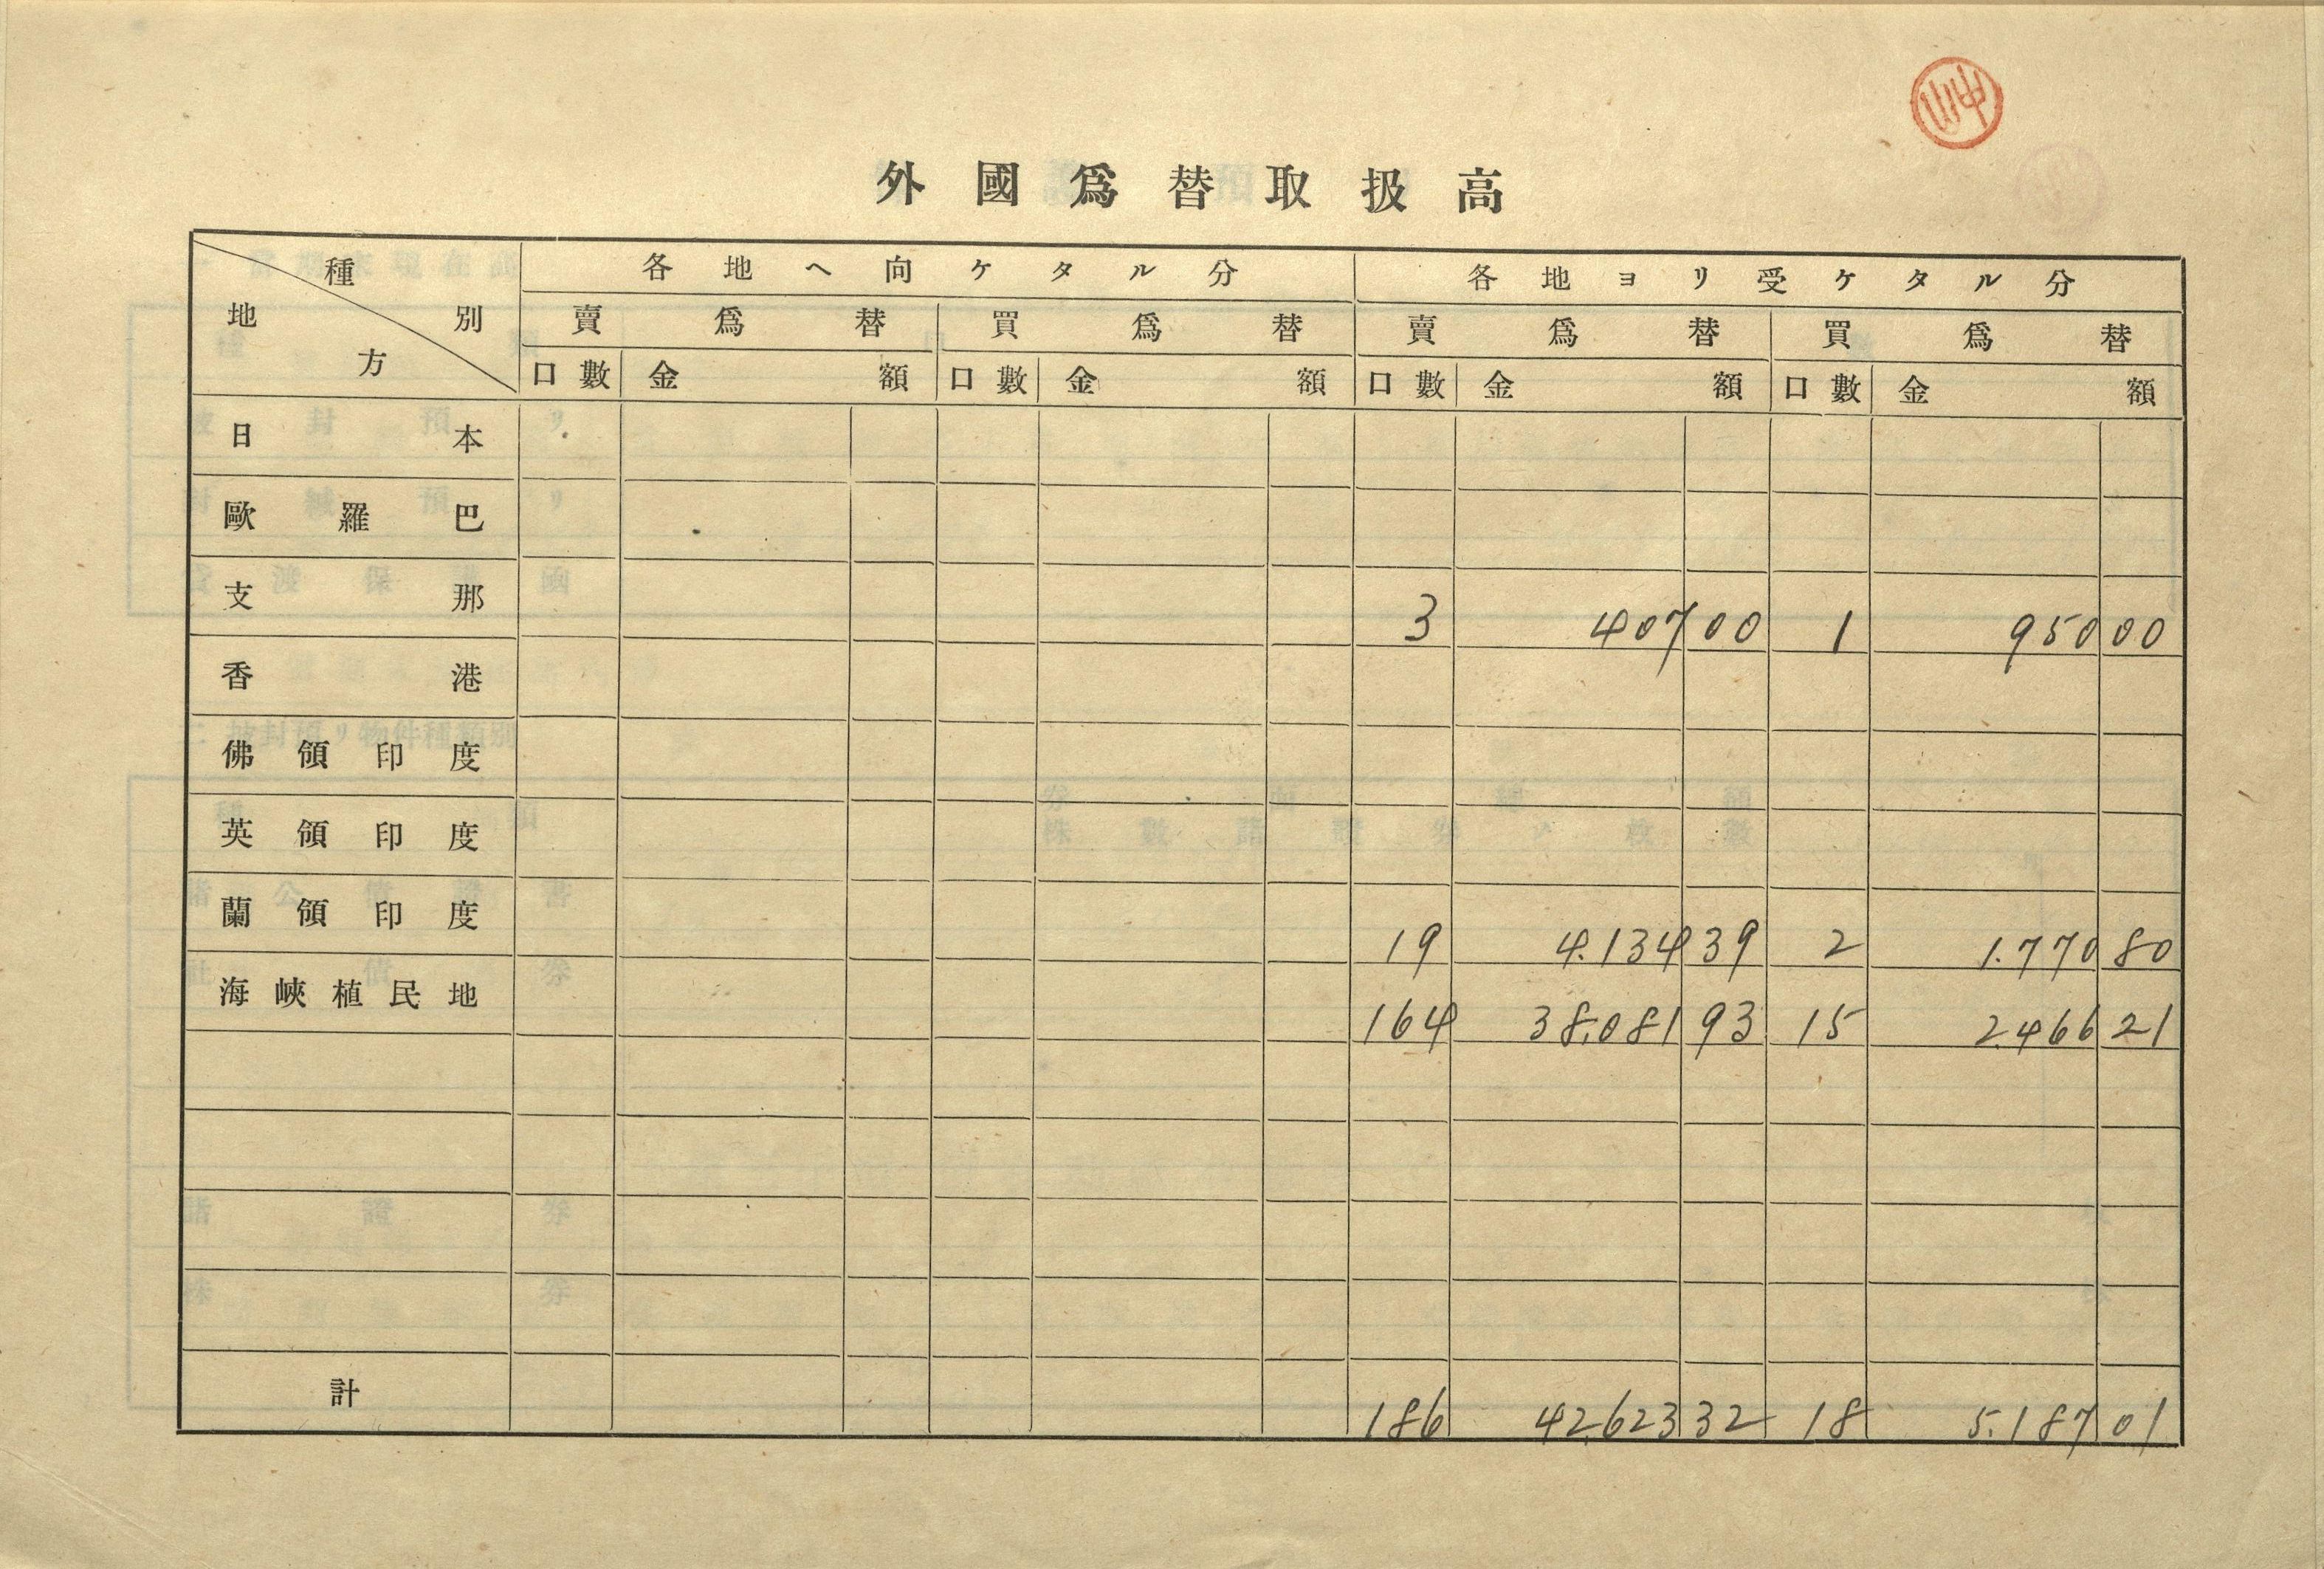 外國爲替取扱高
種別 地方 各地ヘ向ケタル分 各地ヨリ受ケタル分
賣爲替 買爲替 賣爲替 買爲替
口數 金額 口數 金額 口數 金額 口數 金額
日本
歐羅巴
支那 3 407 00 1 950 00
香港
佛領印度
英領印度
蘭領印度 19 4.134 39 2 1.770 80
海峽植民地 164 38.081 93 15 2.466 21
計 186 42.623 32 18 5.187 01